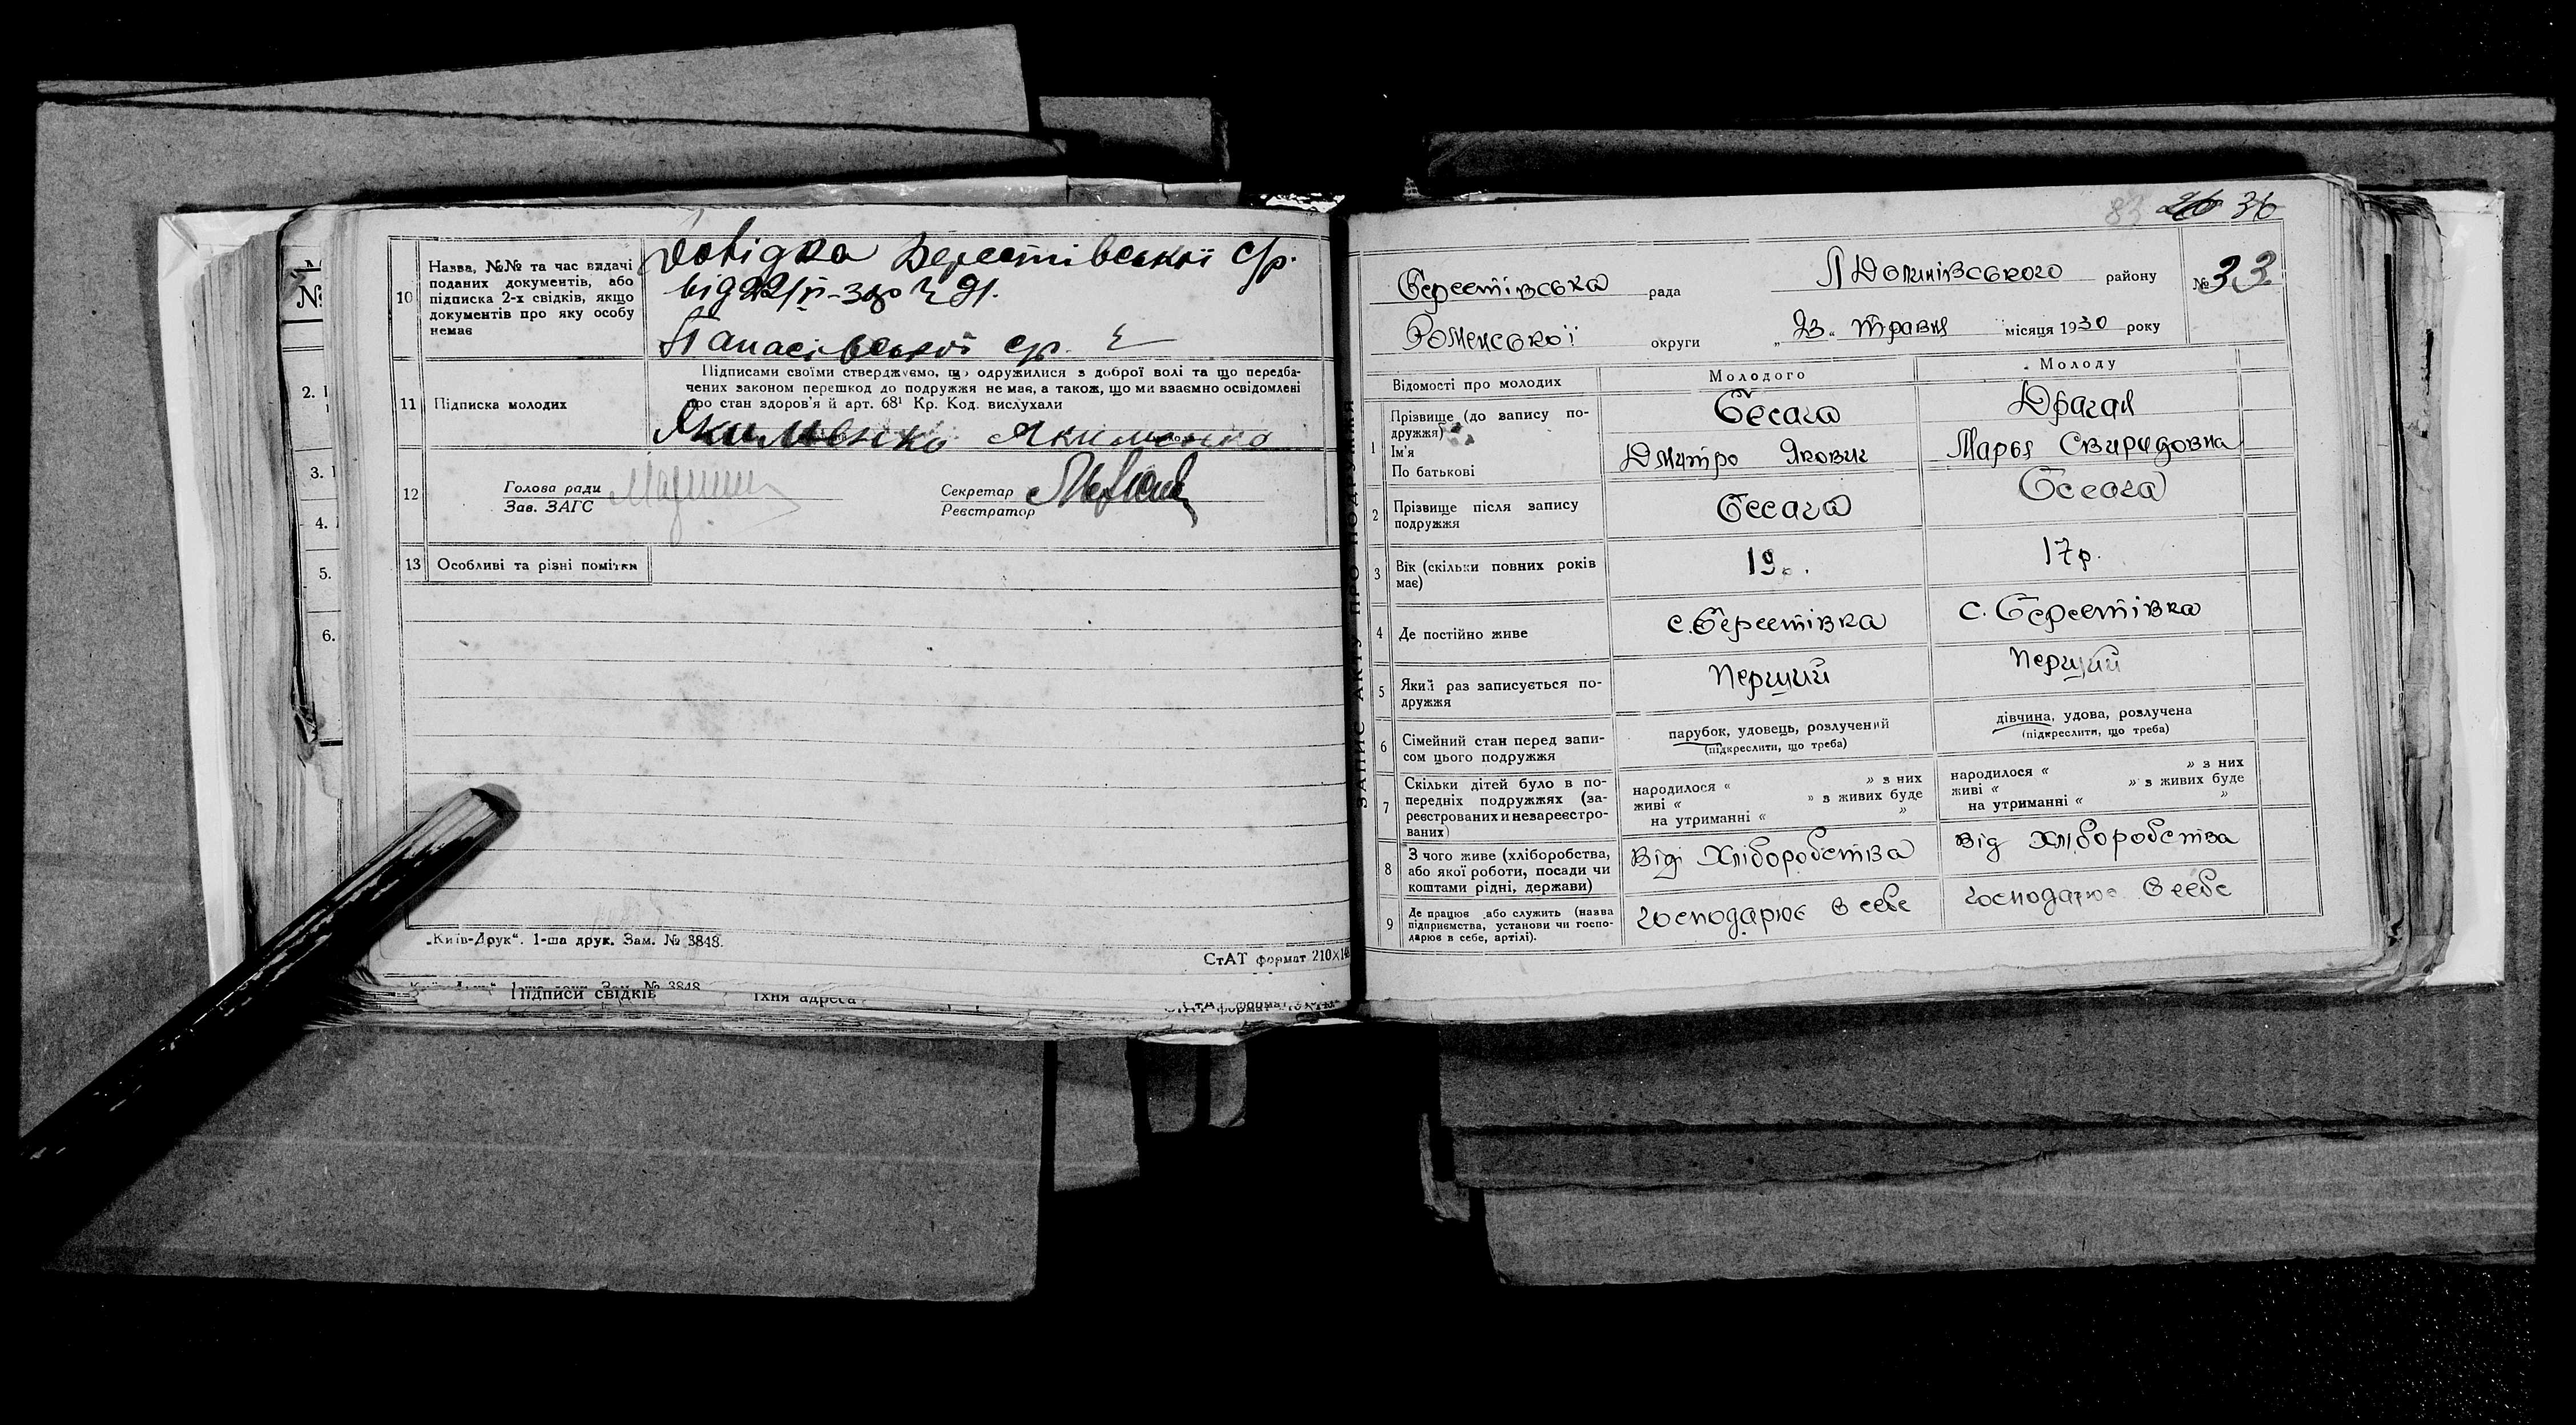 10
Назва, №№ та час видачі
поданих документів, або
підписка 2-х свідків, якщо
документів про яку особу
немає
Довідка Берестівської с/р.
від 22/V-30р № 91.
Панасівської ср. є
11
Підписка молодих
Підписами своїми стверджуємо, що одружилися з доброї волі та що передба-
чених законом перешкод до подружжя не має, а також, що ми взаємно освідомлені
про стан здоров'я й арт. 68¹ Кр. Код. вислухали
Якименко Якименко
12
Голова ради
Зав. ЗАГС
Секретар
Реєстратор
13
Особливі та різні помітки
„Київ-Друк“. 1-ша друк. Зам. № 3848.
СтАТ формат 210×14
Підписи свідків їхня адреса
№
2.
3.
4.
5.
6.
ЗАПИС АКТУ ПРО ПОДРУЖЖЯ
83 26 36
Берестівська рада
району
№ 33
Роменської округи
„23“ травня місяця 1930 року
Відомості про молодих
Молодого
Молоду
1
Прізвище (до запису по-
дружжя)
Ім'я
По батькові
Бесага
Дмитро Якович
Драган
Марья Свиридовна
2
Прізвище після запису
подружжя
Бесага
Бесага
3
Вік (скільки повних років
має)
19р.
17р.
4
Де постійно живе
с. Берестівка
с. Берестівка
5
Який раз записується по-
дружжя
Перший
Перший
6
Сімейний стан перед запи-
сом цього подружжя
парубок, удовець, розлучений
(підкреслити, що треба)
дівчина, удова, розлучена
(підкреслити, що треба)
7
Скільки дітей було в по-
передніх подружжях (за-
реєстрованих и незареєстро-
ваних)
народилося « » з них
живі « » з живих буде
на утриманні « »
народилося « » з них
живі « » з живих буде
на утриманні « »
8
З чого живе (хліборобства,
або якої роботи, посади чи
коштами рідні, держави)
Від Хліборобства
Від Хліборобства
9
Де працює або служить (назва
підприємства, установи чи госпо-
дарює в себе, артілі).
Господарює в себе
Господарює в себе